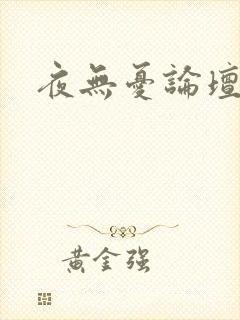 夜無憂論壇
黃金强